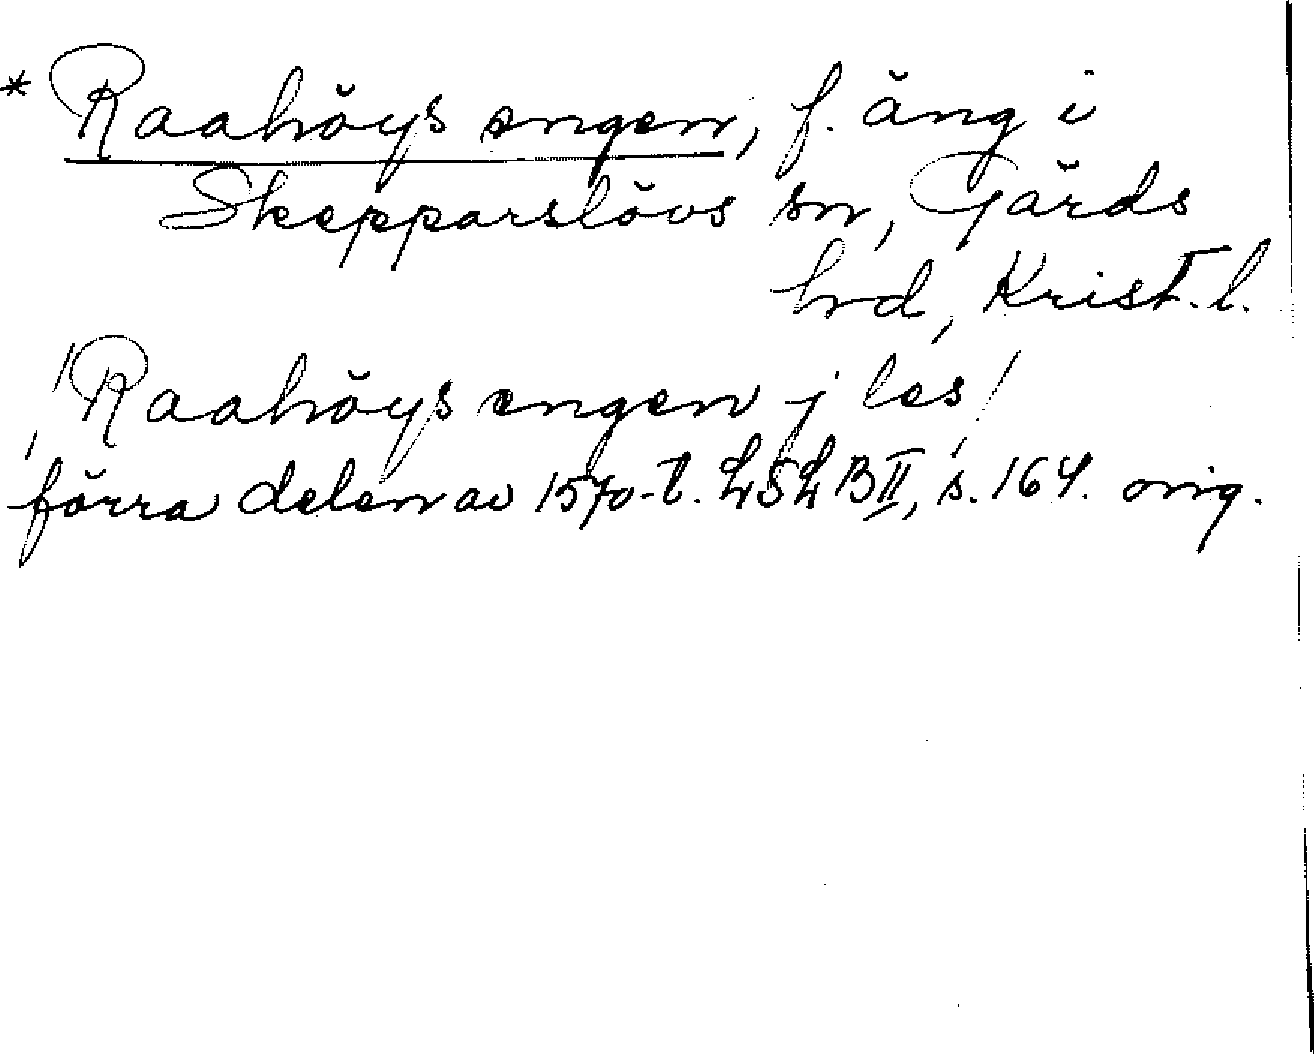 * Raahöys engen, f. äng i
Skepparslövs sn, Gärds
hd, Krist. l.
/Raahöys engen j les/
förra delen av 1570-t. LSL B II, s. 164. orig.